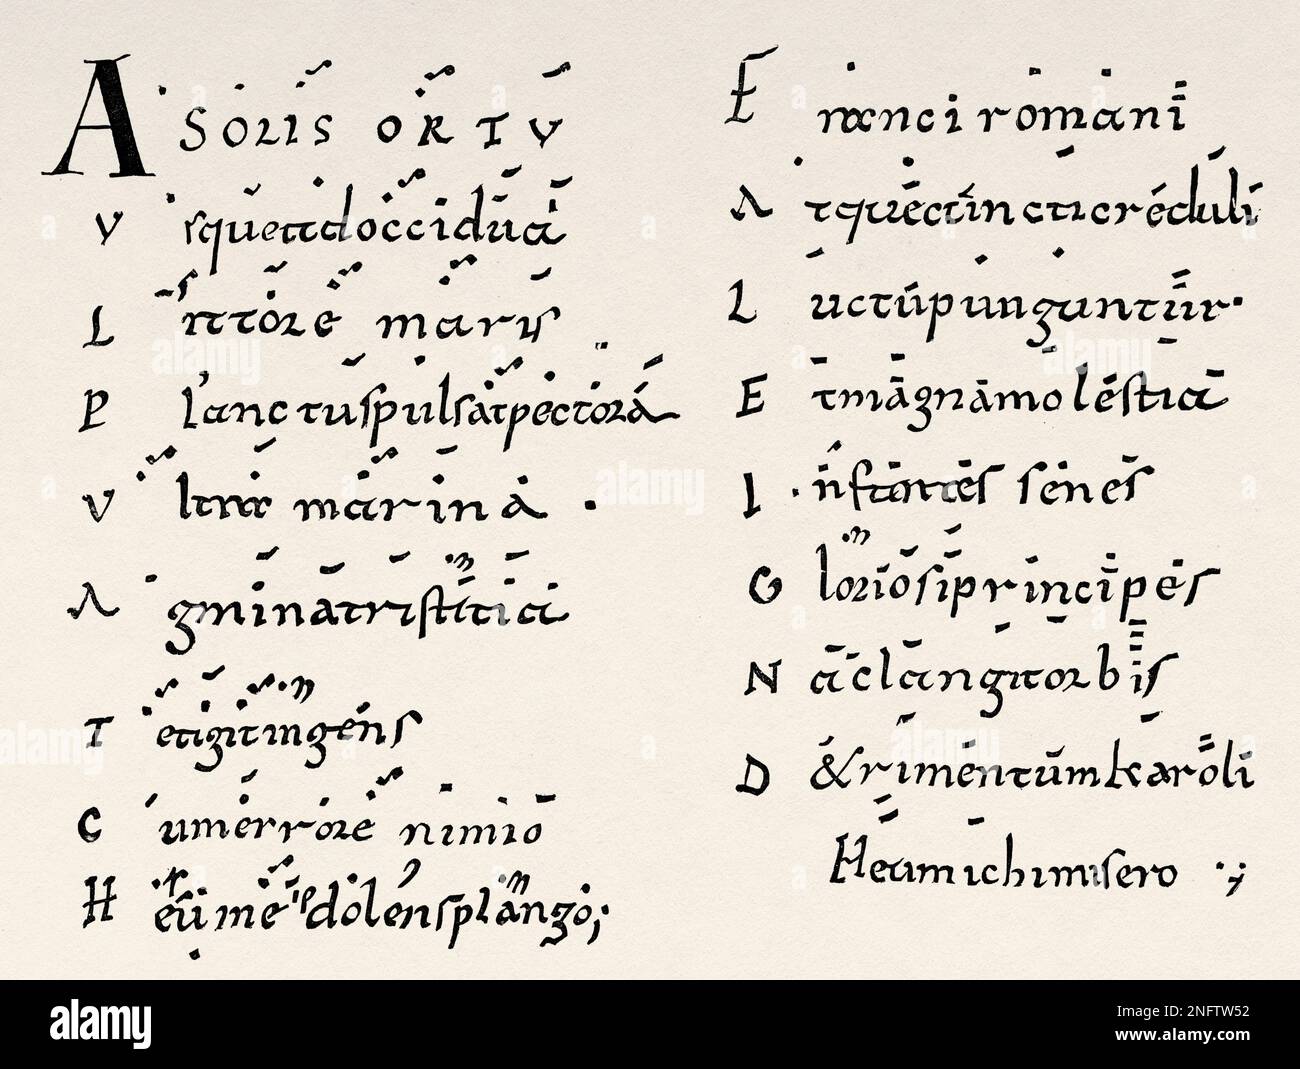 A SOLIS ORTU
V squeadoccidua
L ittore maris
P lanctuspulsatpectora
V ltra marina
A gminatristitia
T etigitingens
C umerrore nimio
H eume dolensplango;
F ranci romani
A tquecuncticreduli
L uctupunguntur.
E tmagnamolestia
I nfantes senes
G loriosiprincipes
N aclangitorbis
D &rimentumkaroli
Heumichimisero
alamy
Image ID: 2NFTW52
www.alamy.com